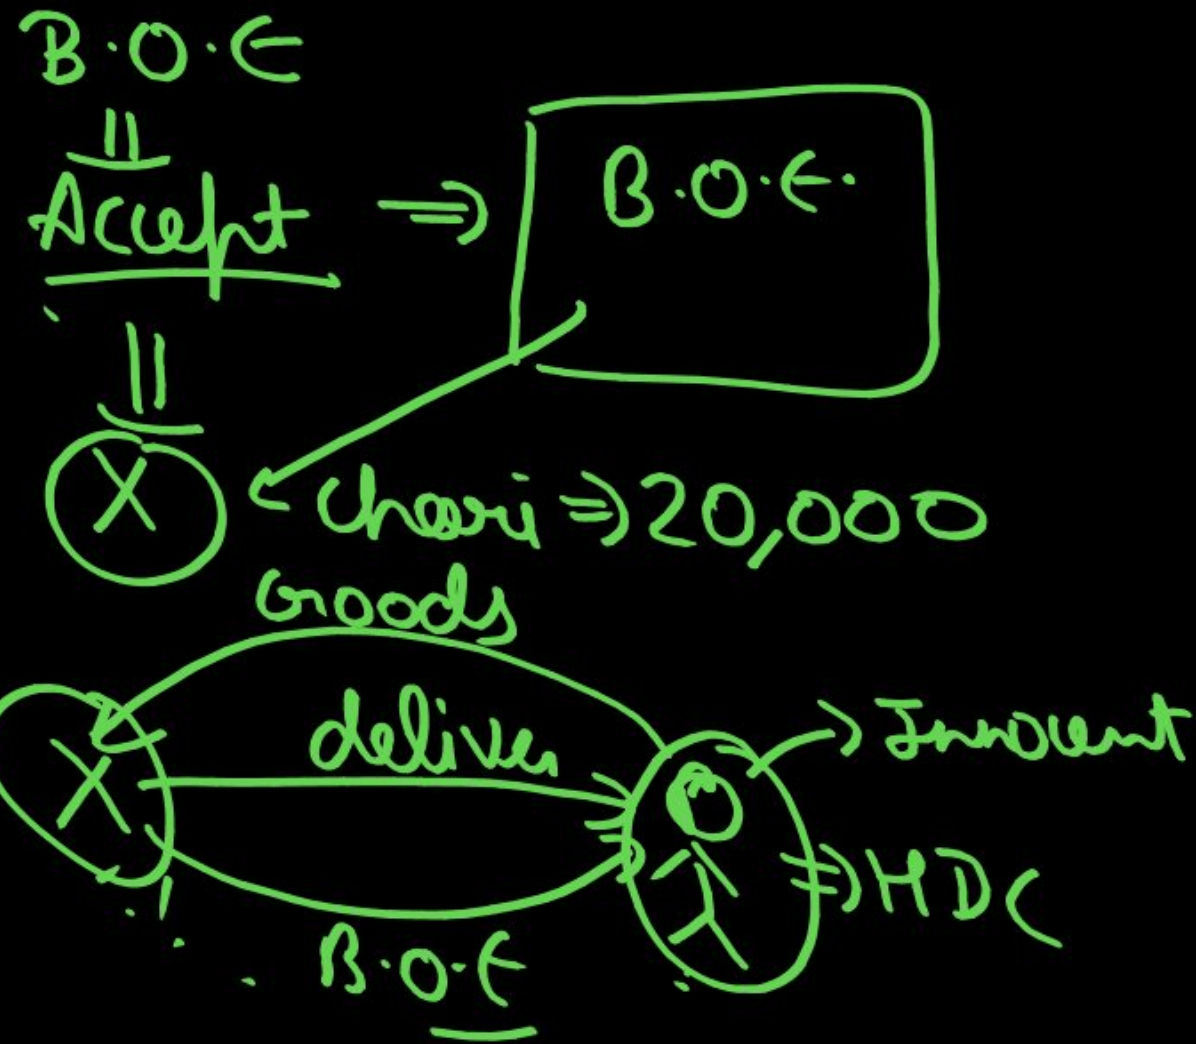 B.O.E
Accept ⇒ B.O.E.
X ← Choori ⇒ 20,000
Goods
X deliver → Innocent
⇒ HDC
B.O.E